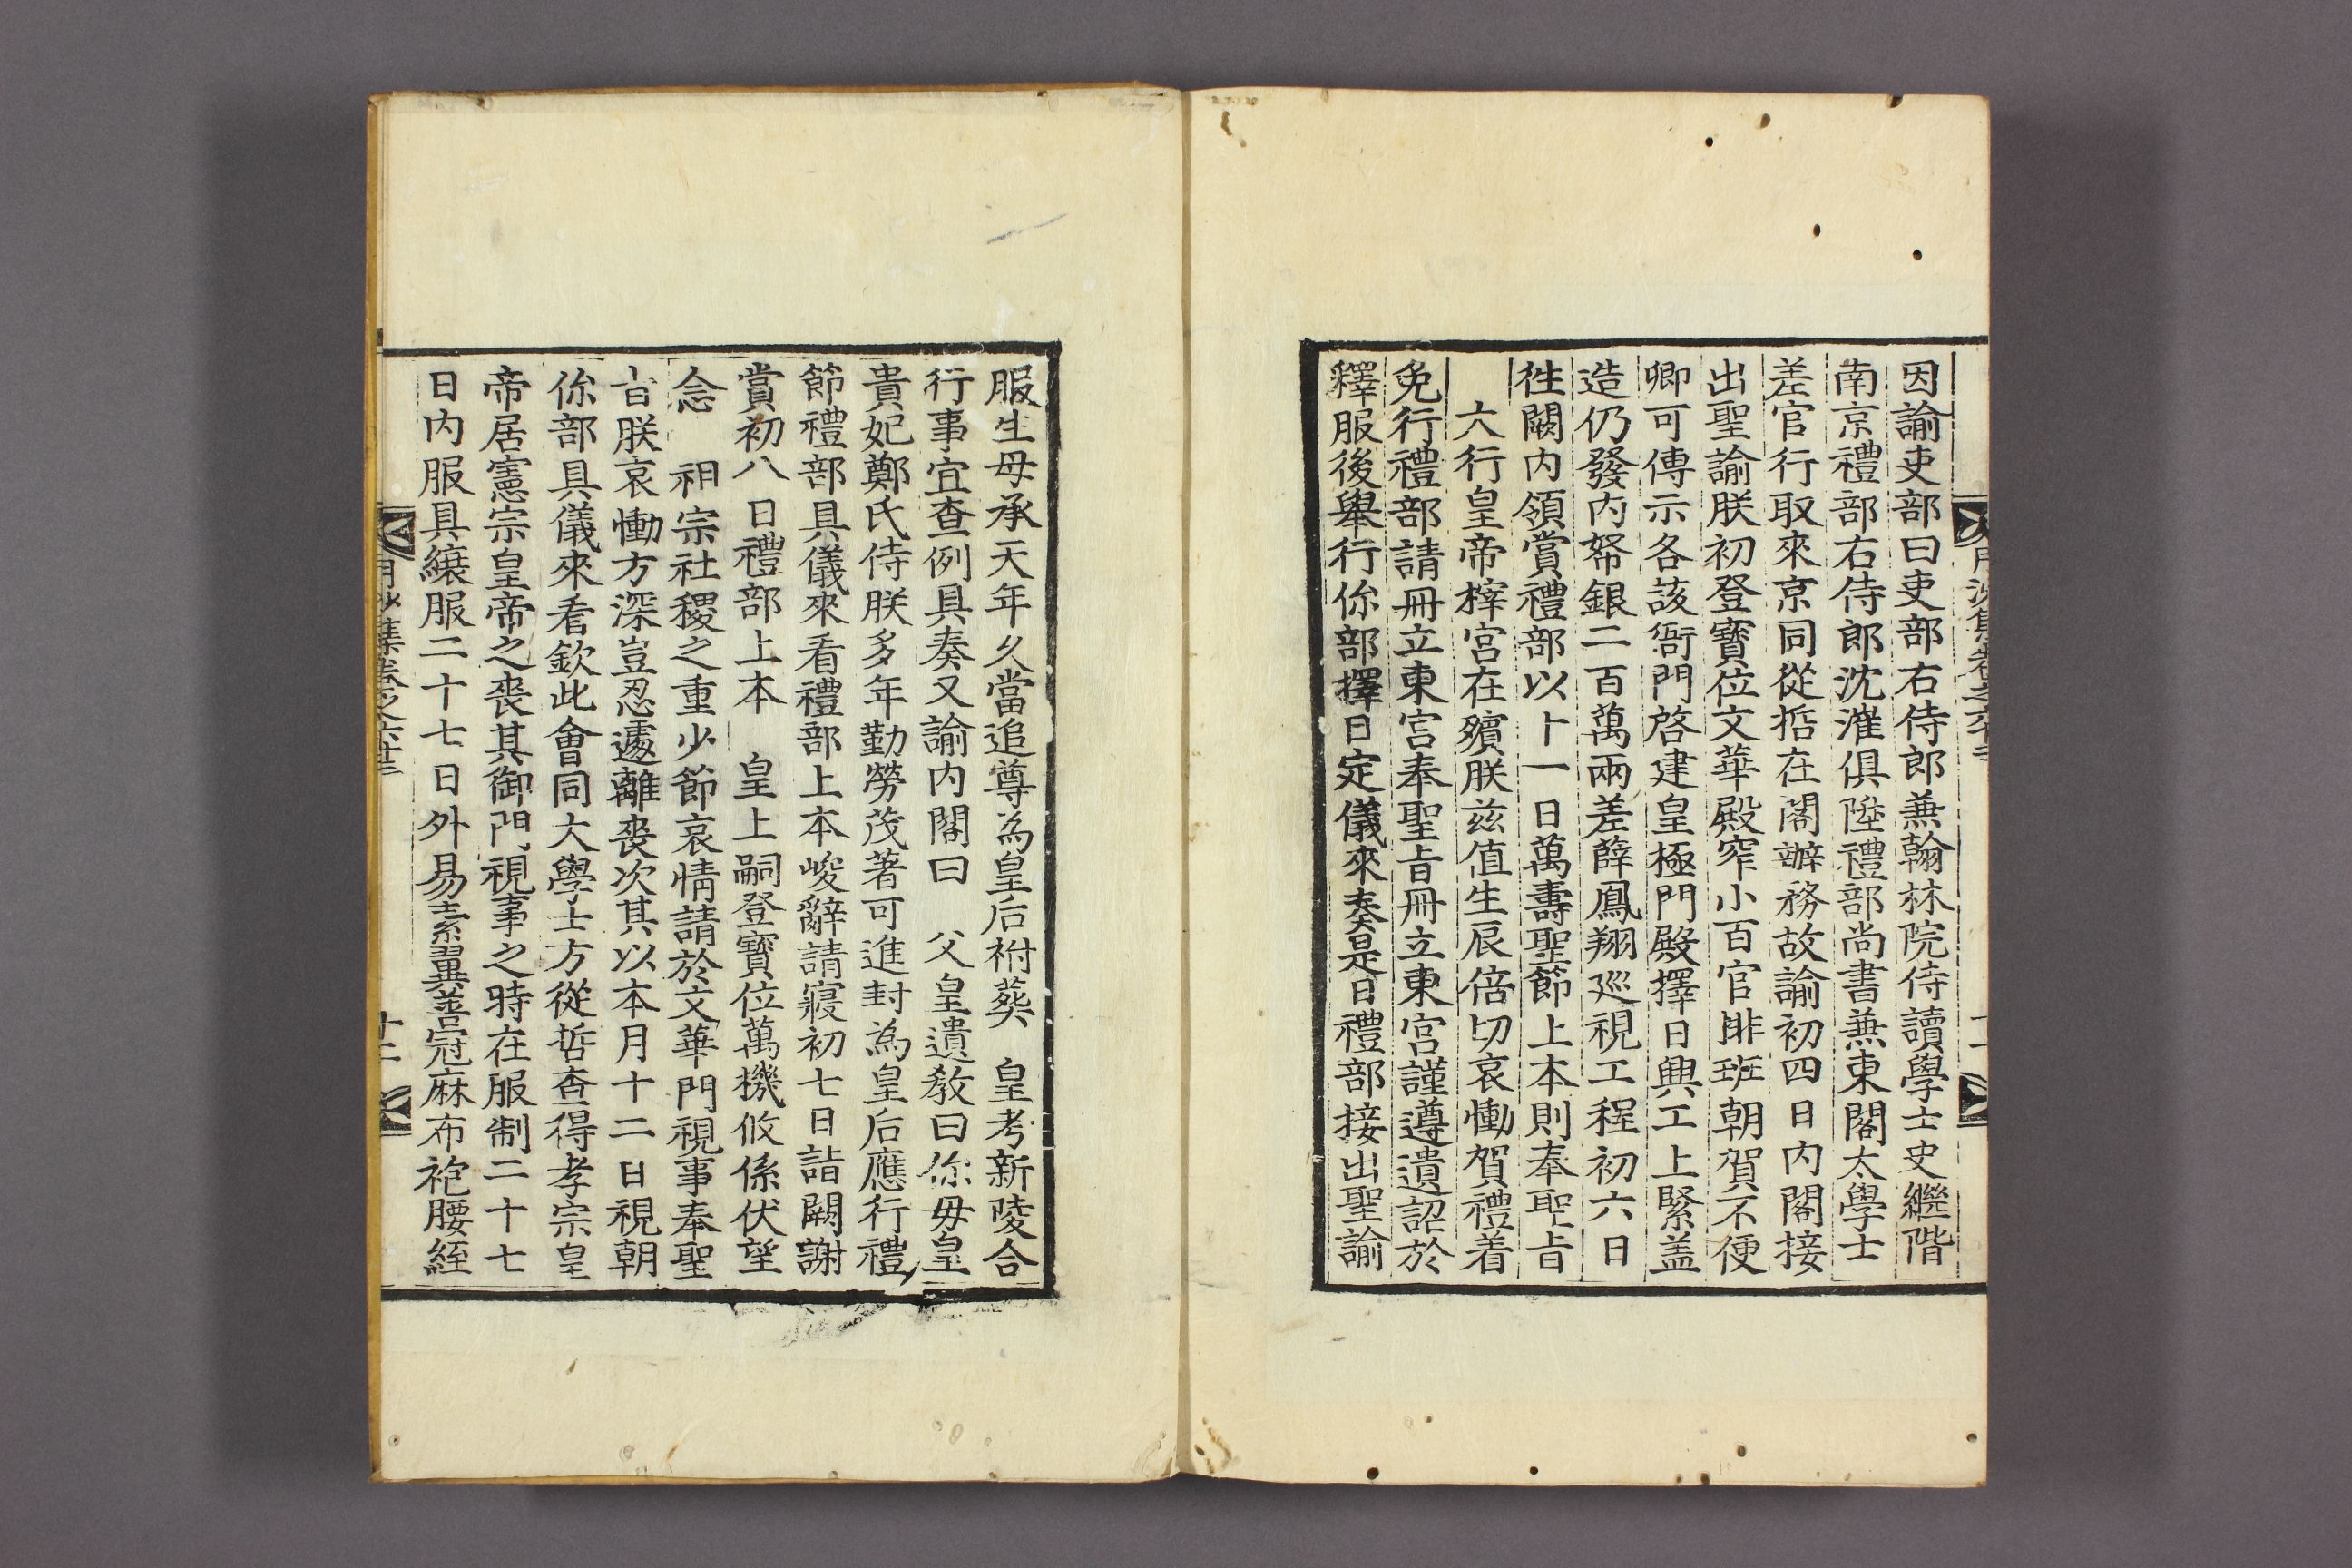 因諭吏部曰吏部右侍郎兼翰林院侍讀學士史繼階
南京禮部右侍郎沈漼俱陞禮部尚書兼東閣太學士
差官行取來京同從哲在閣辦務故諭初四日内閣接
出聖諭朕初登寶位文華殿窄小百官排班朝賀不便
卿可傳示各該衙門啓建皇極門殿擇日興工上緊盖
造仍發内帑銀二百萬兩差薛鳳翔廵視工程初六日
徃闕内領賞禮部以十一日萬壽聖節上本則奉聖旨
六行皇帝梓宮在殯朕兹值生辰倍切哀慟賀禮着
免行禮部請冊立東宮奉聖旨冊立東宮謹遵遺詔於
釋服後舉行你部擇日定儀來奏是日禮部接出聖諭
服生母承天年久當追尊為皇后祔葬 皇考新陵合
行事宜查例具奏又諭内閣曰 父皇遺敎曰你毋皇
貴妃鄭氏侍朕多年勤勞茂著可進封為皇后應行禮
節禮部具儀來看禮部上本峻辭請寢初七日詣闕謝
賞初八日禮部上本 皇上嗣登寶位萬機攸係伏望
念 祖宗社稷之重少節哀情請於文華門視事奉聖
旨朕哀慟方深豈忍遽離喪次其以本月十二日視朝
你部具儀來看欽此會同大學士方從哲查得孝宗皇
帝居憲宗皇帝之喪其御門視事之時在服制二十七
日内服具縗服二十七日外易素翼善冠麻布袍腰絰
月沙集卷之二十二
十二